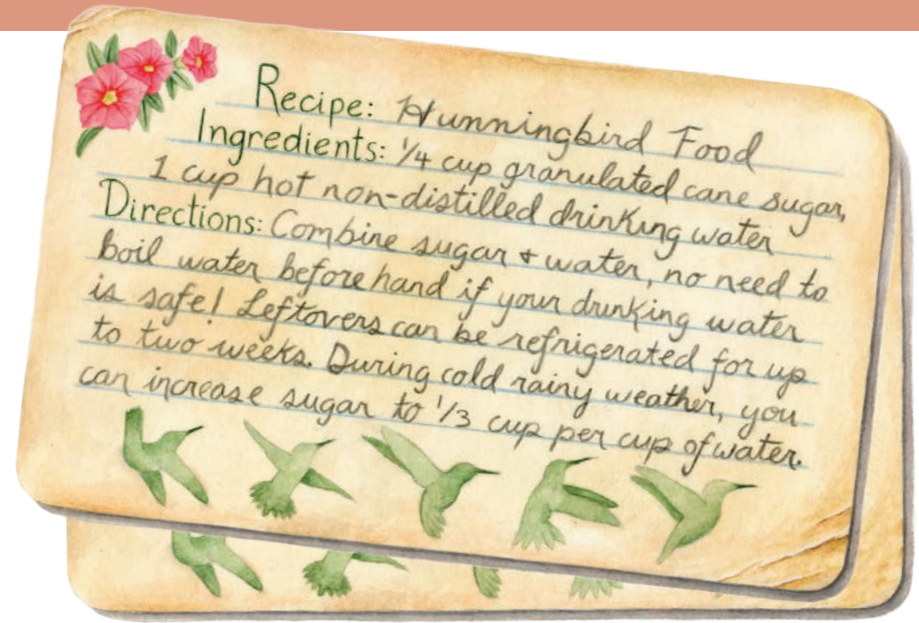 Recipe: Hunningbird Food
Ingredients: 1/4 cup granulated cane sugar,
1 cup hot non-distilled drinking water
Directions: Combine sugar + water, no need to
boil water beforehand if your drinking water
is safe! Leftovers can be refrigerated for up
to two weeks. During cold rainy weather, you
can increase sugar to 1/3 cup per cup of water.